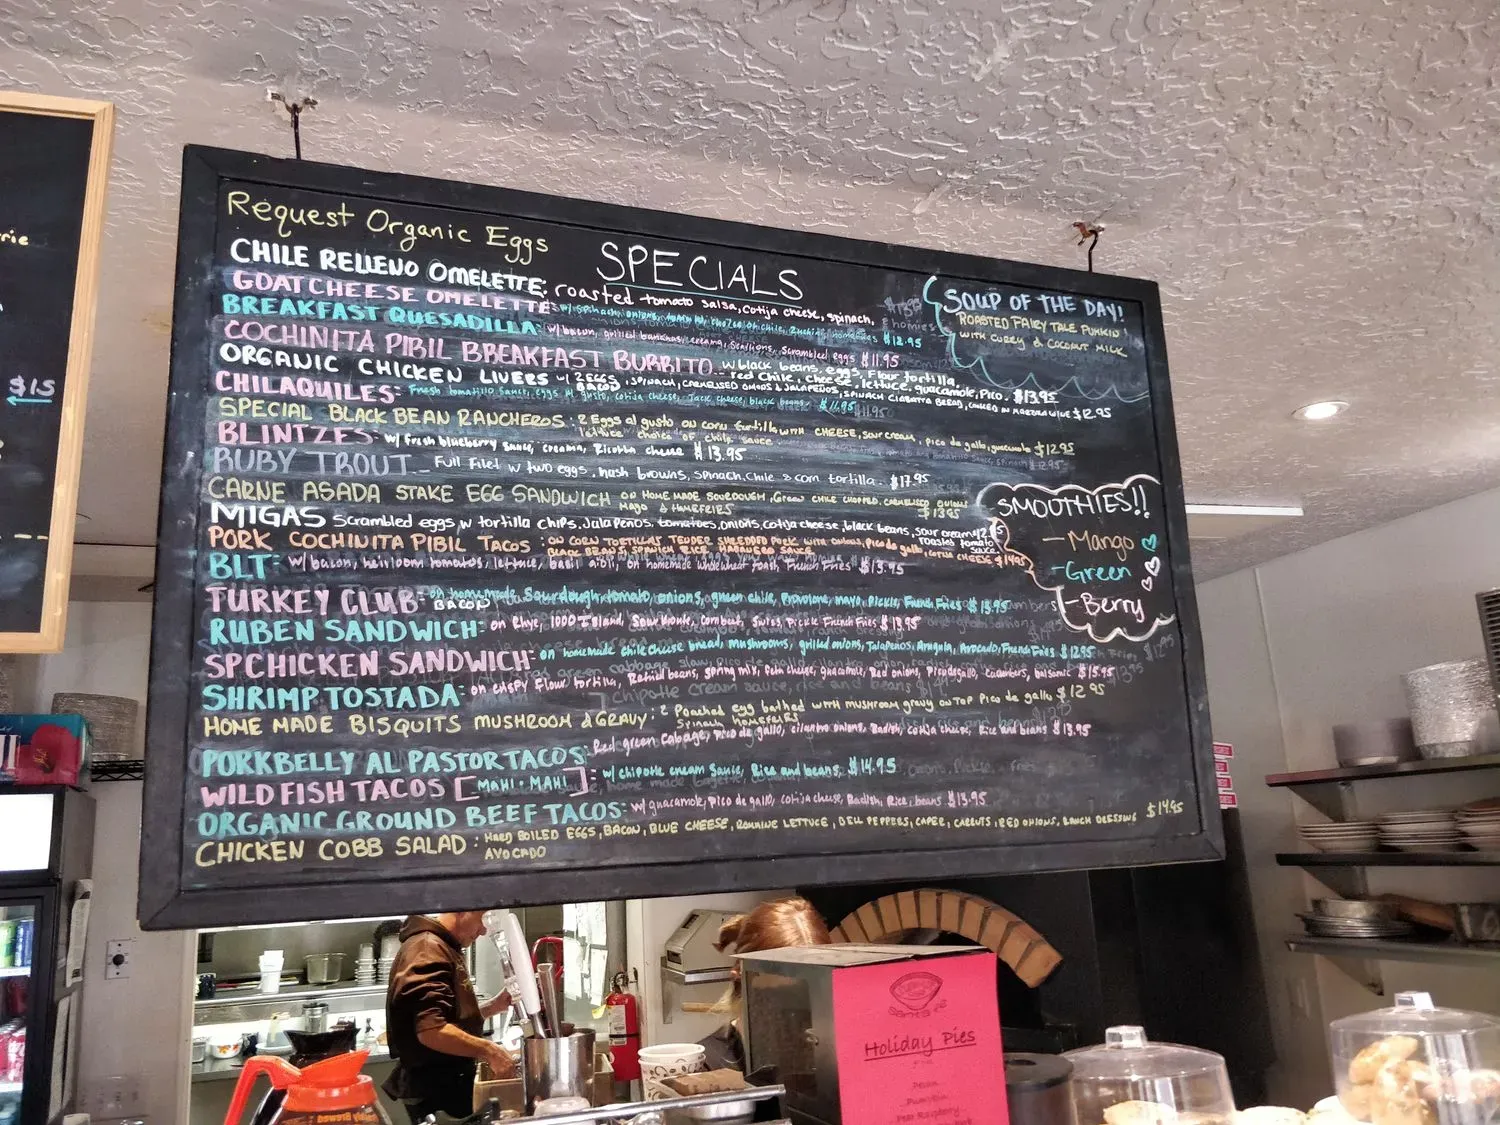 Request Organic Eggs
SPECIALS
CHILE RELLENO OMELETTE: roasted tomato salsa, cotija cheese, spinach,
GOAT CHEESE OMELETTE: w/ spinach, onions,
BREAKFAST QUESADILLA: w/ bacon, grilled bananas, crema, scallions, scrambled eggs $11.95
$12.95
COCHINITA PIBIL BREAKFAST BURRITO w/ black beans, eggs, Flour tortilla,
red Chile, cheese, lettuce, guacamole, Pico. $13.95
ORGANIC CHICKEN LIVERS w/ 2 EGGS, SPINACH, CARMELISED ONIONS & JALAPEÑOS, SPINACH CIABATTA BREAD, COOKED IN MARSALA WINE $12.95
BACON
CHILAQUILES: Fresh tomatillo Sauce, eggs al gusto, cotija cheese, Jack cheese, black beans. $11.95
SPECIAL BLACK BEAN RANCHEROS: 2 Eggs al gusto on corn tortilla WITH CHEESE, sour cream, pico de gallo, guacamole $12.95
lettuce choice of chile sauce
BLINTZES: w/ fresh blueberry Sauce, creama, Ricotta cheese $13.95
RUBY TROUT - Full Filet w two eggs, hash browns, Spinach, Chile & corn tortilla. $17.95
CARNE ASADA STAKE EGG SANDWICH ON HOME MADE SOURDOUGH, Green CHILE CHOPPED, CARMELISED ONIONS
MAYO & HOMEFRIES $13.95
MIGAS Scrambled eggs w tortilla chips, Jalapeños, tomatoes, onions, cotija cheese, black beans, sour cream $12.95
roasted tomato
sauce
PORK COCHINITA PIBIL TACOS: ON CORN TORTILLAS TENDER SHREDDED PORK WITH ONIONS, PICO de gallo, COTIJA CHEESE $14.95
BLACK BEANS, SPANISH RICE, HABANERO SAUCE
BLT: w/ bacon, heirloom tomatos, lettuce, basil aioli, on homemade wholewheat toast, French Fries $13.95
TURKEY CLUB: on homemade Sourdough, tomato, onions, green chile, Provolone, mayo, Pickle, French Fries $13.95
BACON
RUBEN SANDWICH: on Rhye, 1000 Island, Sourkroute, Cornbeef, Swiss, Pickle French Fries $13.95
SPCHICKEN SANDWICH: on homemade chile cheese bread, mushrooms, grilled onions, Jalapenos, Arugula, Avocado, French Fries $12.95
SHRIMP TOSTADA: on crispy Flour tortilla, Refried beans, spring mix, feta cheese, guacamole, Red onions, Pico de gallo, cucumbers, balsamic $15.95
HOME MADE BISQUITS MUSHROOM & GRAVY: 2 Poached egg bathed WITH mushroom gravy on TOP Pico de gallo $12.95
Spinach HOMEFRIES
PORKBELLY AL PASTOR TACOS: Red green Cabbage, Pico de gallo, cilantro onions, Radish, cotija cheese, Rice and beans $13.95
WILD FISH TACOS [MAHI-MAHI]: w/ chipotle cream Sauce, Rice and beans, $14.95
ORGANIC GROUND BEEF TACOS: w/ guacamole, Pico de gallo, cotija cheese, Radish, Rice, beans $13.95
CHICKEN COBB SALAD: HARD BOILED EGGS, BACON, BLUE CHEESE, ROMAINE LETTUCE, BELL PEPPERS, CAPER, CARROTS, RED ONIONS, RANCH DRESSING $14.95
AVOCADO
SOUP OF THE DAY!
ROASTED FAIRY TALE PUMKIN!
WITH CURRY & COCONUT MILK
SMOOTHIES!!
-Mango
-Green
-Berry
$15
Holiday Pies
Pecan
Pumpkin